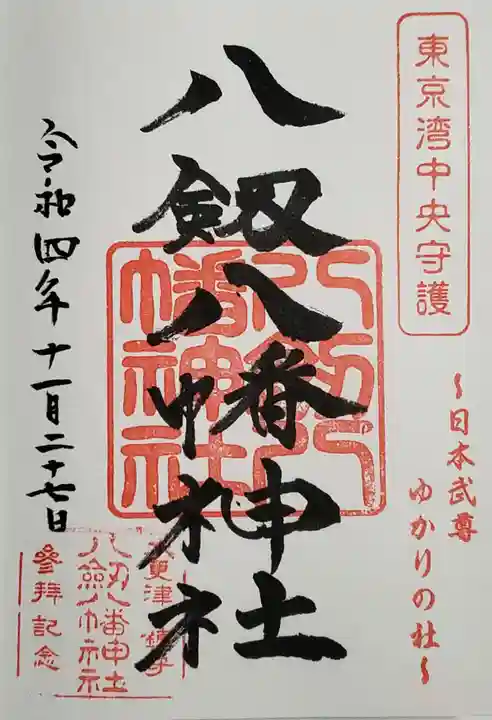 東京湾中央守護
～日本武尊
ゆかりの社～
八剱八幡神社
八剱八幡神社
令和四年十一月二十七日
木更津鎮守
八剱八幡神社
參拜記念